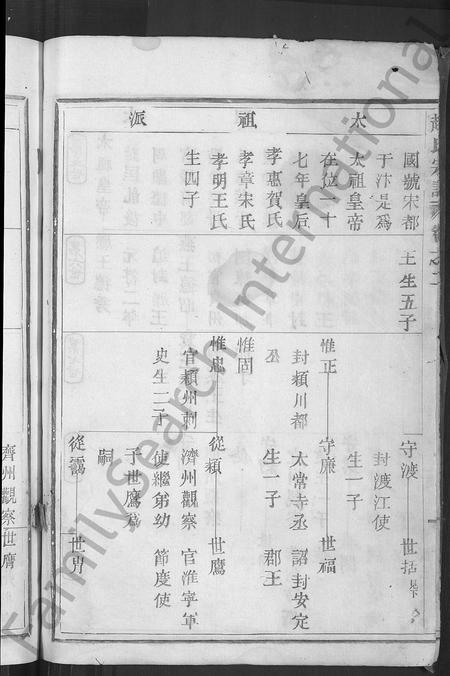 趙氏宗譜
卷之一
太祖派
國號宋都
于汴是爲
太祖皇帝
在位一十
七年皇后
孝惠賀氏
孝章宋氏
孝明王氏
生四子
王生五子
惟正
封潁川都
丞
惟固
惟忠
官潁州刺
史生二子
守渡
封渡江使
生一子
守廉
太常寺丞
生一子
從穎
濟州觀察
使繼弟幼
子世膺爲
嗣
從靄
世括
世福
詔封安定
郡王
世膺
官淮寧軍
節度使
世冑
濟州觀察
世膺
FamilySearch International